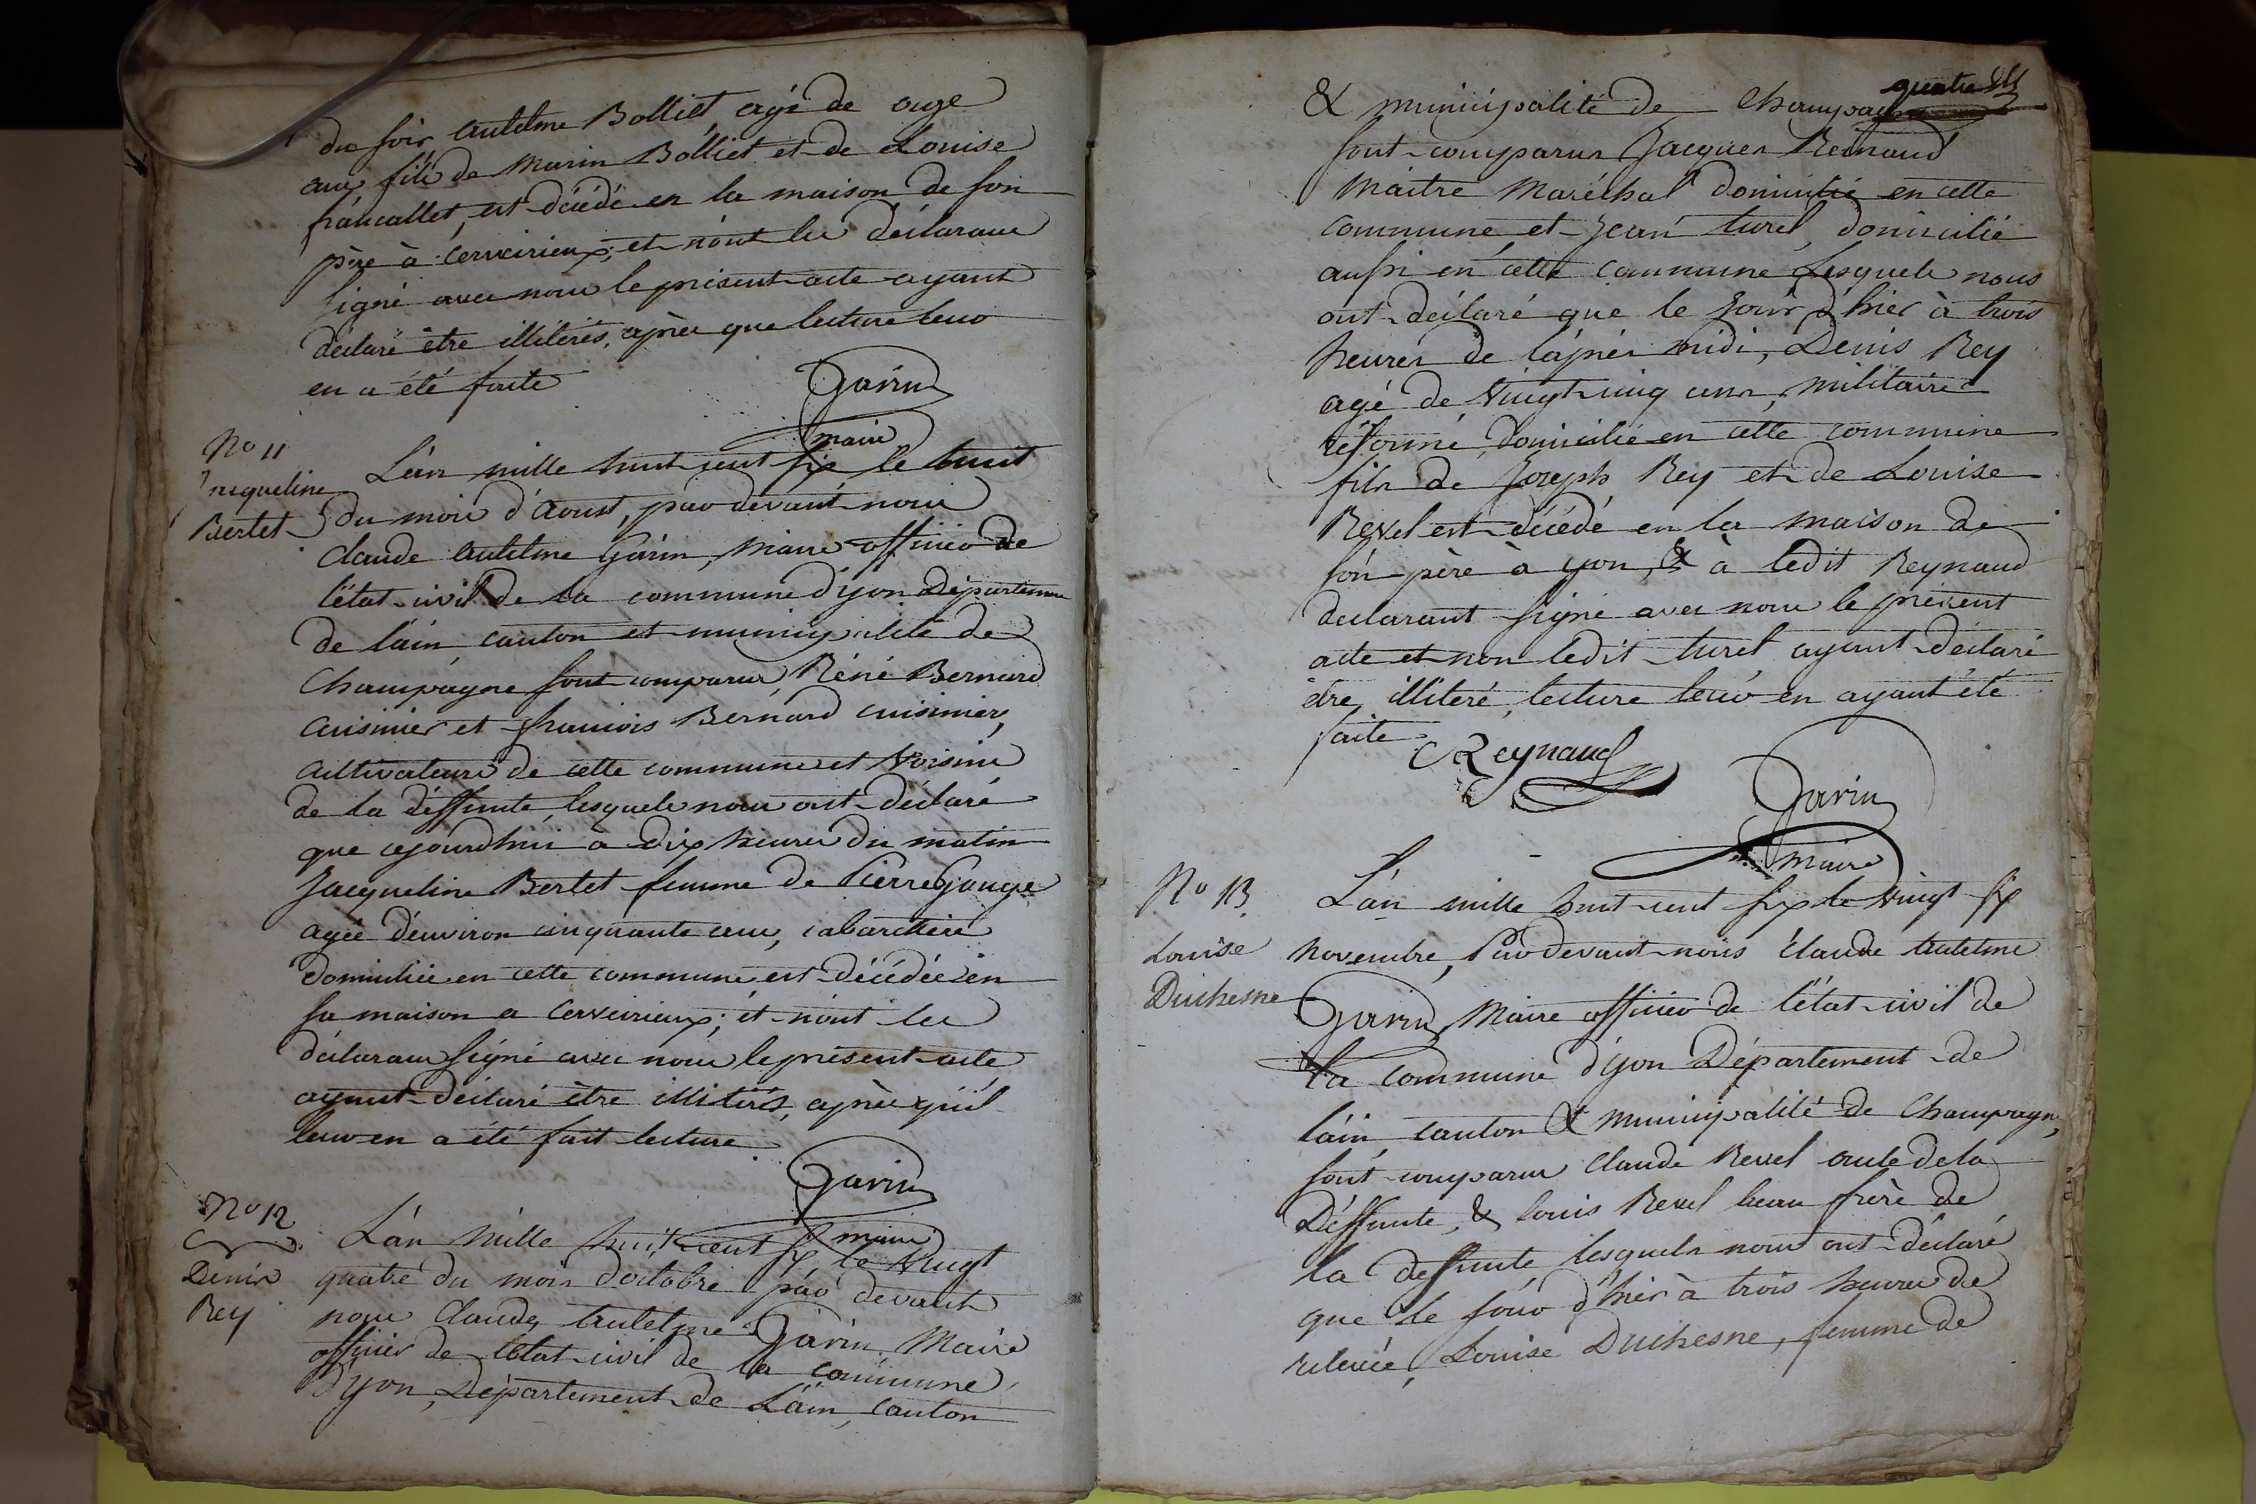 du soir Antelme Bolliet, agé de onze
ans fils de Marin Bolliet et de Louise
francallet, est décédé en la maison de son
père à Cerveirieux, et n'ont les déclarans
signé avec nous le présent acte ayant
déclaré être illitérés, après que lecture leur
en a été faite
Garin
maire
No 11
Jacqueline
Bertet
L'an mille huit cent six le huit
du mois d'Aoust, par devant nous
Claude Antelme Garin, Maire officier de
l'état civil de la commune d'yon Département
de l'ain canton et municipalité de
Champagne sont comparus Réné Bernard
Cuisinier et françois Bernard Cuisinier,
cultivateurs de cette commune et Voisins
de la déffunte, lesquels nous ont déclaré
que cejourdhui a dix heures du matin
Jacqueline Bertet femme de Pierre Gouge
agée d'environ cinquante ans, cabarettiere
domiciliée en cette commune est décédée en
sa maison a Cerveirieux; et n'ont les
déclarans signé avec nous le présent acte
ayant déclaré être illitérés, après qu'il
leur en a été fait lecture.
Garin
maire
No 12
Denis
Rey
L'an Mille huit cent six, le Vingt
quatre du mois d'octobre par devant
nous Claude Antelme Garin, Maire
officier de l'état civil de la commune
d'yon, Département de L'ain, canton
quatre
& municipalité de Champagne
sont comparus Jacques Reinaud
Maitre Maréchal domicilié en cette
commune et Jean turel, domicilié
aussi en cette commune Lesquels nous
ont déclaré que le jour d'hier à trois
heures de l'après midi, Denis Rey
agé de Vingt cinq ans, militaire
réformé, domicilié en cette commune
fils de Joseph Rey et de Louise
Revel est décédé en la maison de
son père à yon, & à ledit Reynaud
declarant signé avec nous le présent
acte et non ledit turel ayant déclaré
être illitéré, lecture leur en ayant été
faite.
Reynaud
Garin
Maire
No 13
Louise
Duchesne
L'an mille huit cent six le Vingt six
Novembre, Par devant nous Claude Antelme
Garin, Maire officier de l'état civil de
la commune d'yon Département de
l'ain, canton & municipalité de Champagne,
sont comparus Claude Revel oncle de la
Déffunte, & Louis Revel beau frère de
la deffunte lesquels nous ont déclaré
que le jour d'hier à trois heures de
relevée, Louise Duchesne, femme de